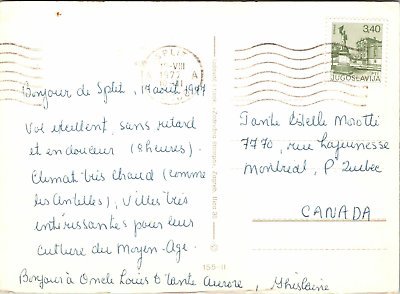 SPLIT
VIII
1977
A A
3,40
JUGOSLAVIJA
Bonjour de Split, 17 août 1977
Vol excellent, sans retard
et en douceur (8 heures).
Climat très chaud (comme
les Antilles), villes très
intéressantes pour leur
culture du Moyen-Age.
Bonjour à Oncle Louis & Tante Aurore, Ghislaine
Tante Estelle Miotti
7770, rue Lajeunesse
Montréal, P. Québec
CANADA
155-11